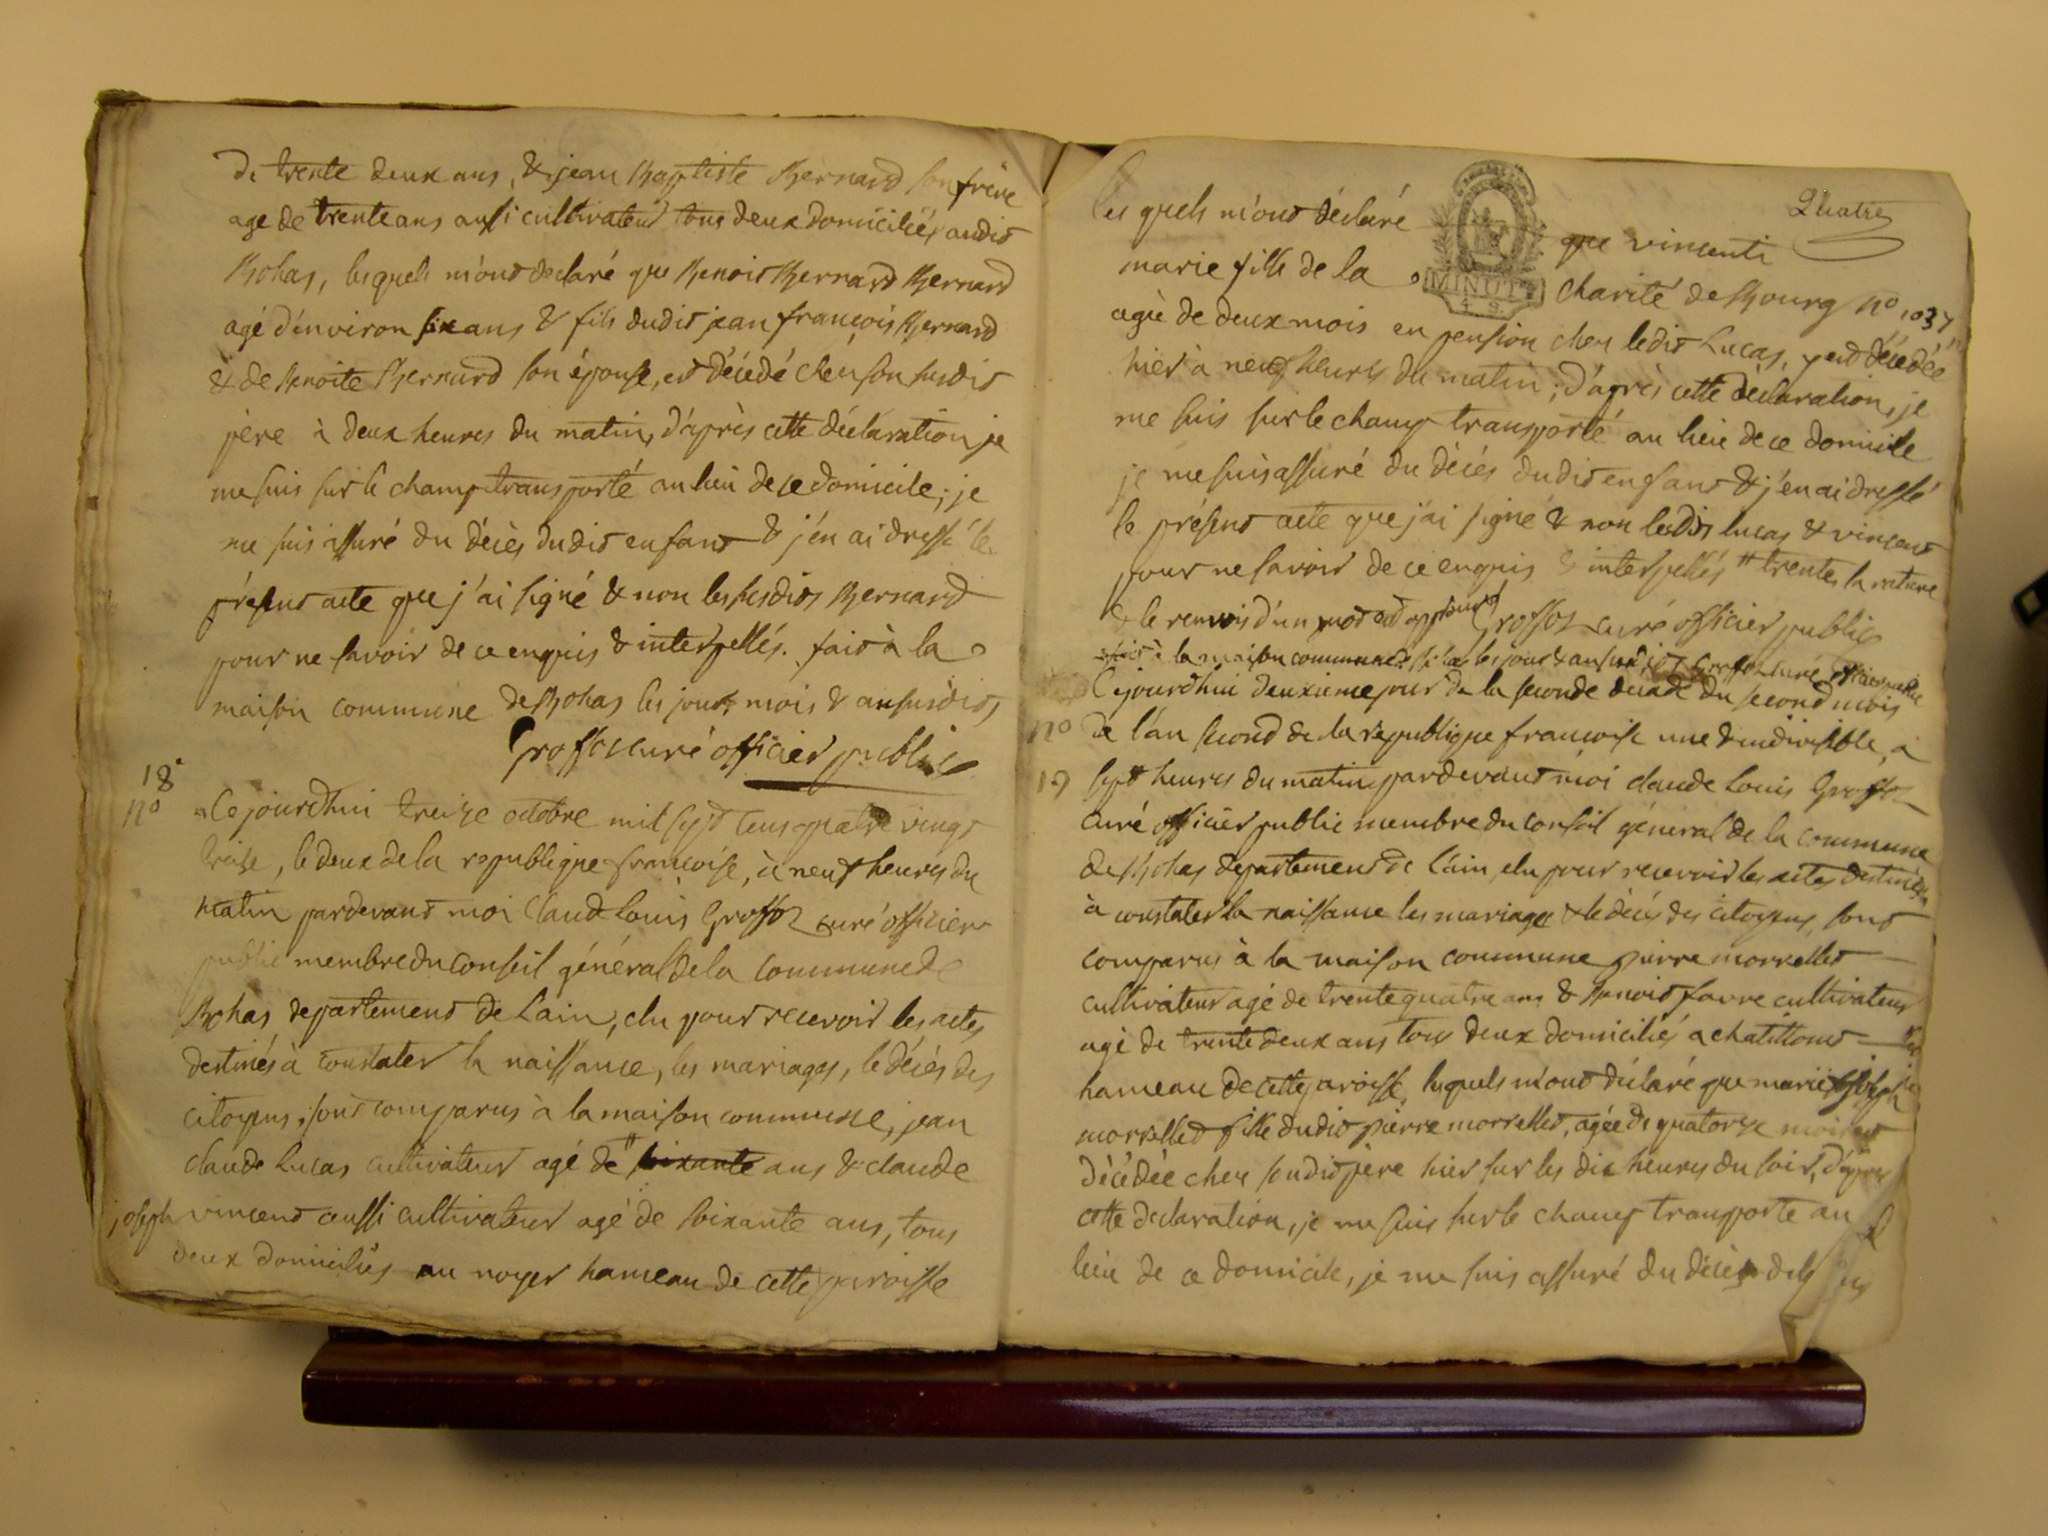 de trente deux ans, & jean Baptiste Bernard son frère
agé de trente ans aussi cultivateur tous deux domiciliés audit
Bohas, lesquels m'ont déclaré que Benoit Bernard Bernard
agé d'environ six ans & fils dudit jean françois Bernard
& de Benoite Bernard son épouse, est décédé chez son susdit
père à deux heures du matin, d'après cette déclaration je
me suis sur le champ transporté au lieu de ce domicile; je
me suis assuré du décès dudit enfant & j'en ai dressé le
présent acte que j'ai signé & non les susdits Bernard
pour ne savoir de ce enquis & interpellés. fait à la
maison commune de Bohas les jour, mois & an susdits
Groffoz curé officier public
18e
no Cejourdhui treize octobre mil sept cens quatre vingt
treise, le deux de la republique françoise, à neuf heures du
matin pardevant moi Claude Louis Groffoz curé officier
public membre du conseil général de la commune de
Bohas departement de Lain, élu pour recevoir les actes
destinés à constater la naissance, les mariages, le décès des
citoyens, sont comparus à la maison commune, jean
claude Lucas cultivateur agé de # soixante ans & claude
joseph vincent aussi cultivateur agé de soixante ans, tous
deux domiciliés au noyer hameau de cette paroisse
Quatre
les quels m'ont déclaré que vincenti
marie fille de la charité de Bourg no 1037
MINUT
agée de deux mois en pension chez ledit Lucas, est décédée
hier à neuf heures du matin; d'après cette déclaration, je
me suis sur le champ transporté au lieu de ce domicile
je me suis assuré du décès dudit enfant & j'en ai dressé
le présent acte que j'ai signé & non lesdits lucas & vincent
pour ne savoir de ce enquis & interpellés # trente, la rature
& le renvois d'un mot est approuvé Groffoz curé officier public
fait à la maison commune les jour & an susdits Groffoz curé officier public
Cejourdhui deuxieme jour de la seconde decade du second mois
no de l'an second de la république françoise une & indivisible, à
19 sept heures du matin pardevant moi claude Louis Groffoz
curé officier public membre du conseil général de la commune
de Bohas departement de l'ain, elu pour recevoir les actes destinés
à constater la naissance les mariages & le décès des citoyens, sont
comparus à la maison commune pierre morrellet
cultivateur agé de trente quatre ans & Benoit favre cultivateur
agé de trente deux ans tous deux domiciliés a chatillonet
hameau de cette paroisse, lesquels m'ont déclaré que marie josephe
morrellet fille dudit pierre morrellet, agée de quatorze mois est
décédée chez sondit père hier sur les dix heures du soir, d'après
cette declaration, je me suis sur le champ transporté au
lieu de ce domicile, je me suis assuré du décès